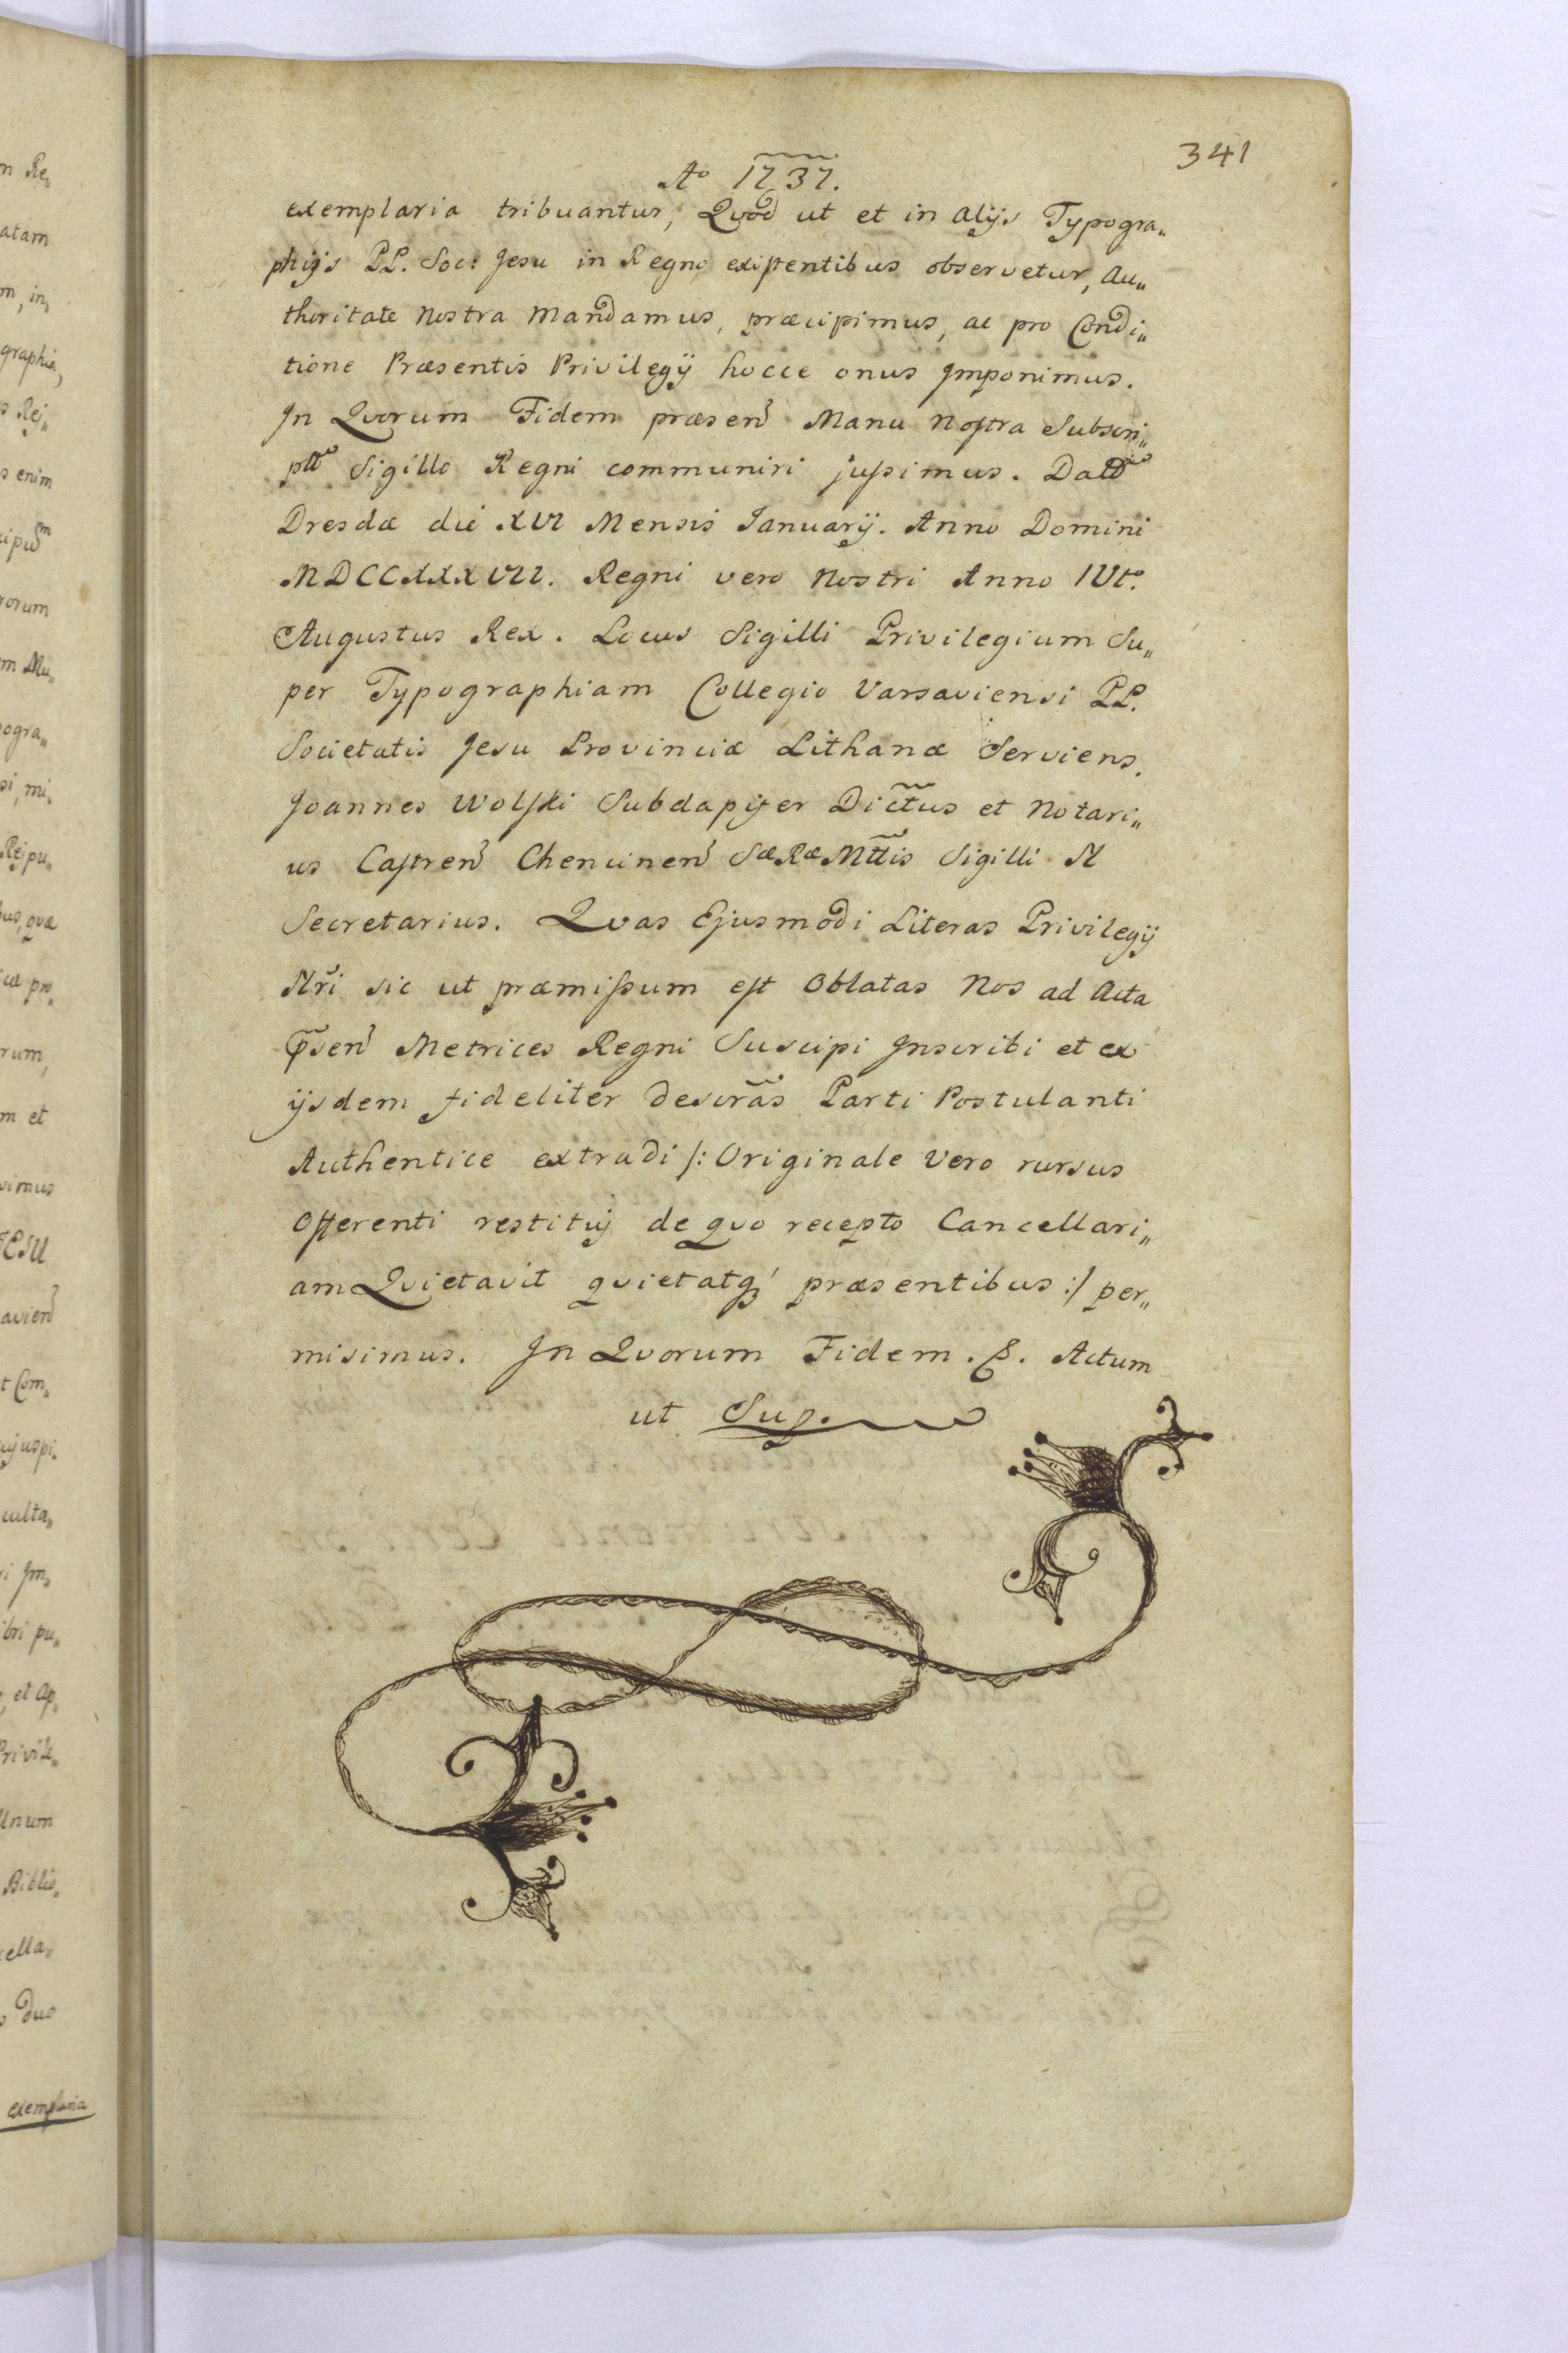 341
Aº 1737.
exemplaria tribuantur, Quod ut et in alijs Typogra„
phijs PP. Soc: Jesu in Regno existentibus observetur, Au„
thoritate Nostra Mandamus, præcipimus, ac pro Condi„
tione Præsentis Privilegij hocce onus Imponimus.
In Quorum Fidem præsen Manu Nostra Subscri„
ptt Sigillo Regni communiri jussimus. Datt
Dresdæ die XVI Mensis Januarij. Anno Domini
MDCCXXXVII. Regni vero Nostri Anno IVtº.
Augustus Rex. Locus Sigilli Privilegium Su„
per Typographiam Collegio Varsaviensi PP.
Societatis Jesu Provinciæ Lithanæ Serviens.
Joannes Wolski Subdapifer Dictus et Notari„
us Castren Chencinen SæRæMttis Sigilli M
Secretarius. Quas Ejusmodi Literas Privilegij
Nri sic ut præmissum est Oblatas Nos ad Acta
psen Metrices Regni Suscipi Inscribi et ex
ijsdem fideliter Descras Parti Postulanti
Authentice extradi /: Originale Vero rursus
Offerenti restituj de quo recepto Cancellari„
am Quietavit quietatq præsentibus :/ per„
misimus. In Quorum Fidem. &. Actum
ut Sup.
n Re„
atam
m, in„
graphia,
s Rej„
s enim
rorum
m Mu„
pogra„
si, mi„
Rejpu„
bus, quæ
pro„
rum,
m et
vimus
JESU
avien
t Com„
cujuspi„
culta„
i Im„
ibri pu„
, et Ap„
Privile„
Unum
Biblio„
cella„
duo
exemplaria